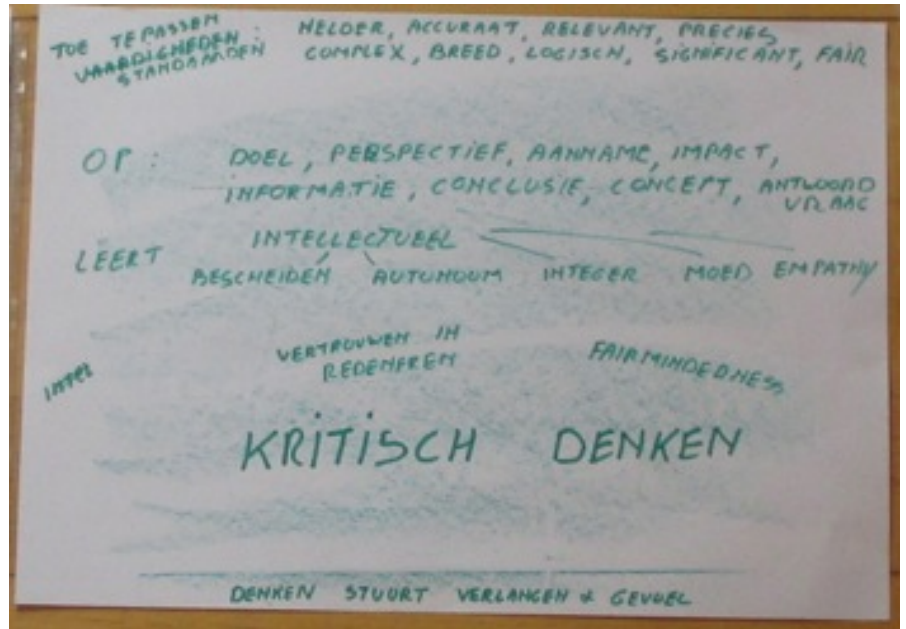 TOE TE PASSEN
VAARDIGHEDEN :
STANDAARDEN
HELDER, ACCURAAT, RELEVANT, PRECIES
COMPLEX, BREED, LOGISCH, SIGNIFICANT, FAIR
OP : DOEL, PERSPECTIEF, AANNAME, IMPACT,
INFORMATIE, CONCLUSIE, CONCEPT, ANTWOORD
VRAAG
LEERT INTELLECTUEEL
BESCHEIDEN AUTONOOM INTEGER MOED EMPATHY
INTEL
VERTROUWEN IN
REDENEREN
FAIRMINDEDNESS
KRITISCH DENKEN
DENKEN STUURT VERLANGEN & GEVOEL